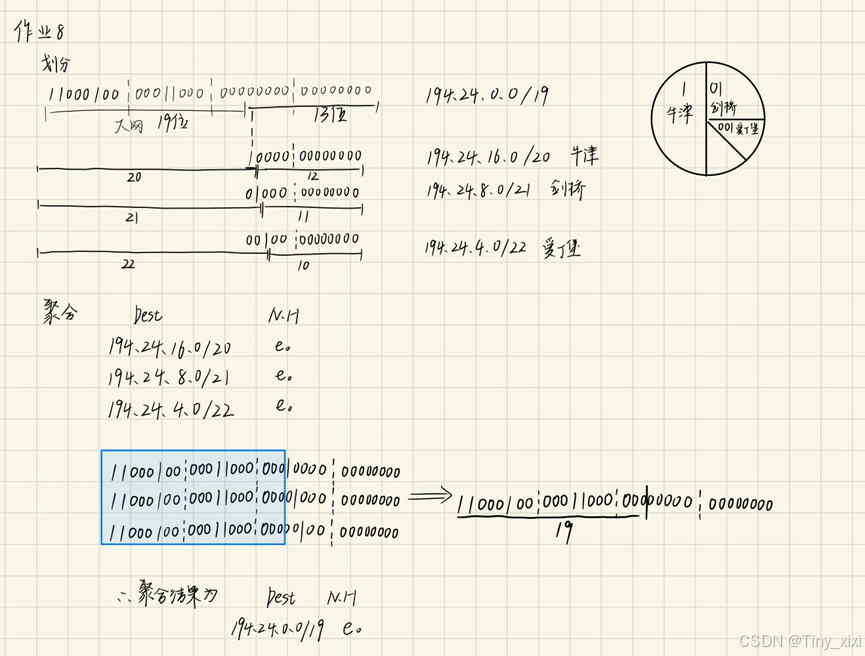 作业8
划分
11000100 00011000 00000000 00000000
大网 19位 13位
194.24.0.0/19
1 牛津
01 剑桥
001 爱丁堡
10000 00000000
20 12
194.24.16.0/20 牛津
01000 00000000
21 11
194.24.8.0/21 剑桥
00100 00000000
22 10
194.24.4.0/22 爱丁堡
聚合 Dest N.H
194.24.16.0/20 e。
194.24.8.0/21 e。
194.24.4.0/22 e。
11000100 00011000 00010000 00000000
11000100 00011000 00001000 00000000
11000100 00011000 00000100 00000000
⇒ 11000100 00011000 00000000 00000000
19
∴ 聚合结果为 Dest N.H
194.24.0.0/19 e。
CSDN @Tiny_xixi